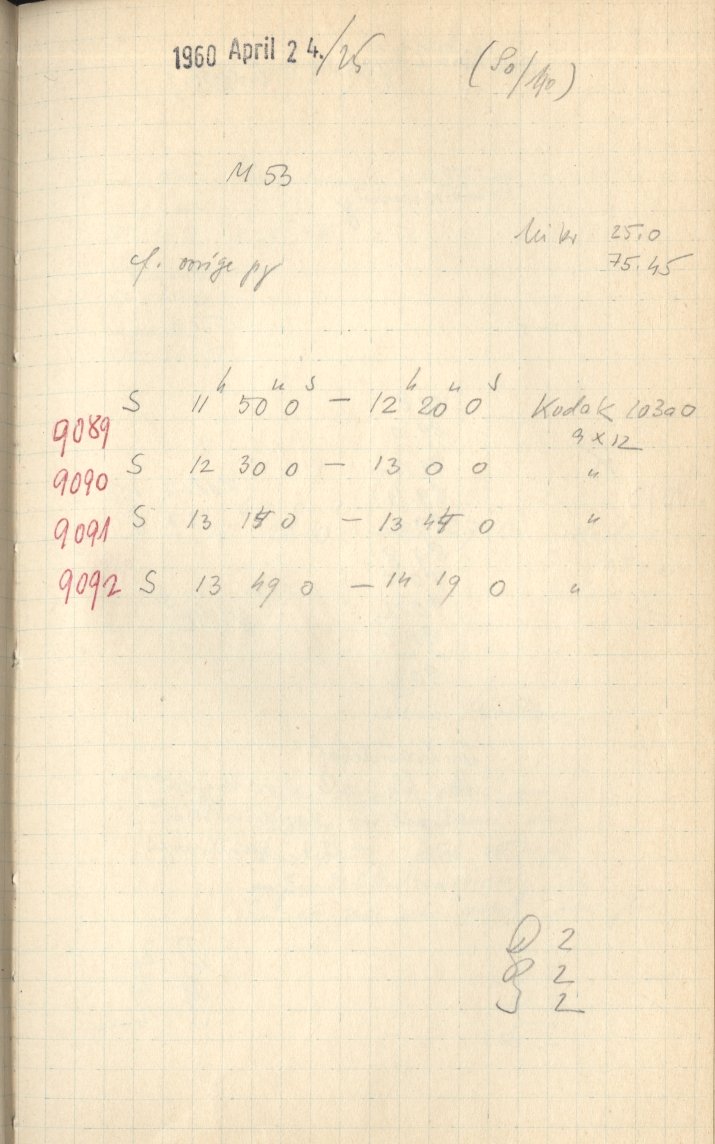 1960 April 24./25
M 53
25.0
75.45
cf. vorige pg
h m s h m s
S 11 50 0 – 12 20 0 Kodak 103aO
9089
9 x 12
9090 S 12 30 0 – 13 0 0 "
9091 S 13 0 – 13 0 "
9092 S 13 49 0 – 14 19 0 "
2
2
2